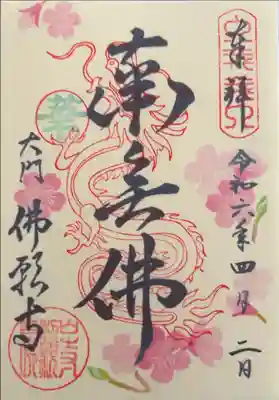 奉拝
令和六年四月二日
南無佛
大門
佛願寺